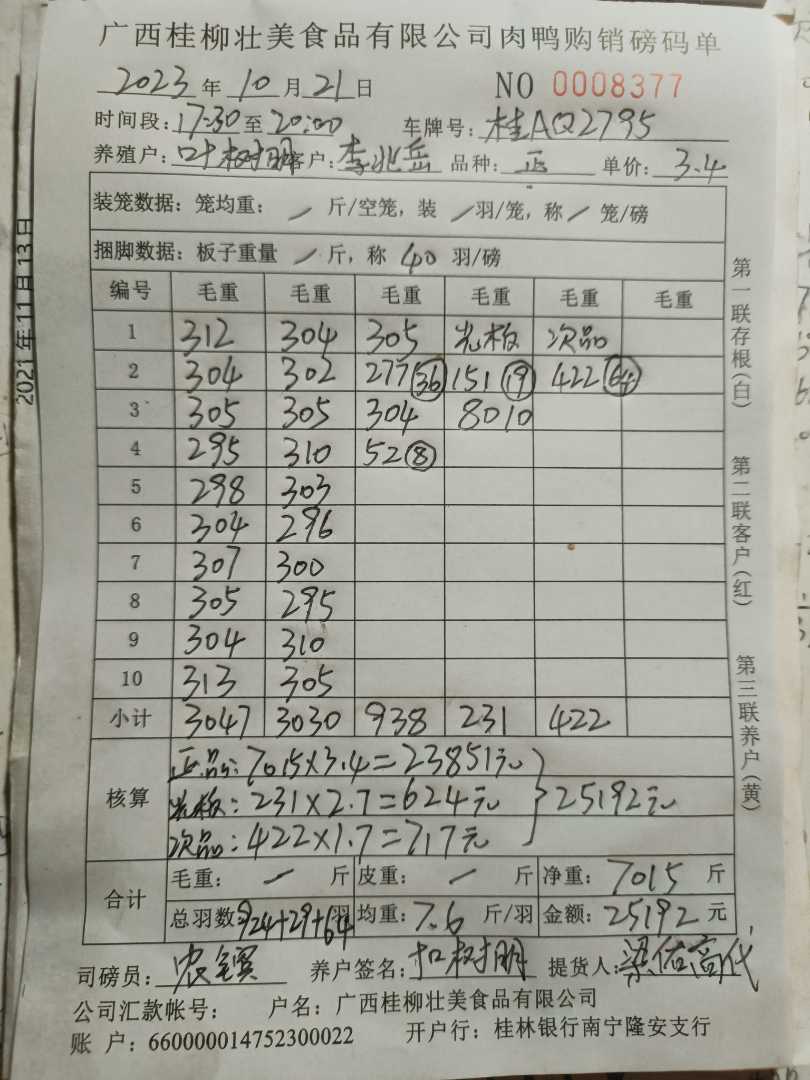 广西桂柳壮美食品有限公司肉鸭购销磅码单
2023年10月21日 NO 0008377
时间段:17:30至20:00 车牌号:桂AQ2795
养殖户:叶树朋 客户:李兆岳 品种:正 单价:3.4
装笼数据:笼均重: / 斤/空笼,装 / 羽/笼,称 / 笼/磅
捆脚数据:板子重量 / 斤,称 40 羽/磅
编号 毛重 毛重 毛重 毛重 毛重 毛重
1 312 304 305 光板 次品
2 304 302 277(36) 151(19) 422(64)
3 305 305 304 80 10
4 295 310 52(8)
5 298 303
6 304 296
7 307 300
8 305 295
9 304 310
10 313 305
小计 3047 3030 938 231 422
核算
正品:7015×3.4=23851元
光板:231×2.7=624元 }25192元
次品:422×1.7=717元
合计
毛重: / 斤 皮重: / 斤 净重:7015斤
总羽数924+29+64羽 均重:7.6斤/羽 金额:25192元
司磅员:农 养户签名:树朋 提货人:梁佑高代
公司汇款帐号: 户名:广西桂柳壮美食品有限公司
账 户:660000014752300022 开户行:桂林银行南宁隆安支行
第一联存根(白)
第二联客户(红)
第三联养户(黄)
2021年11月13日